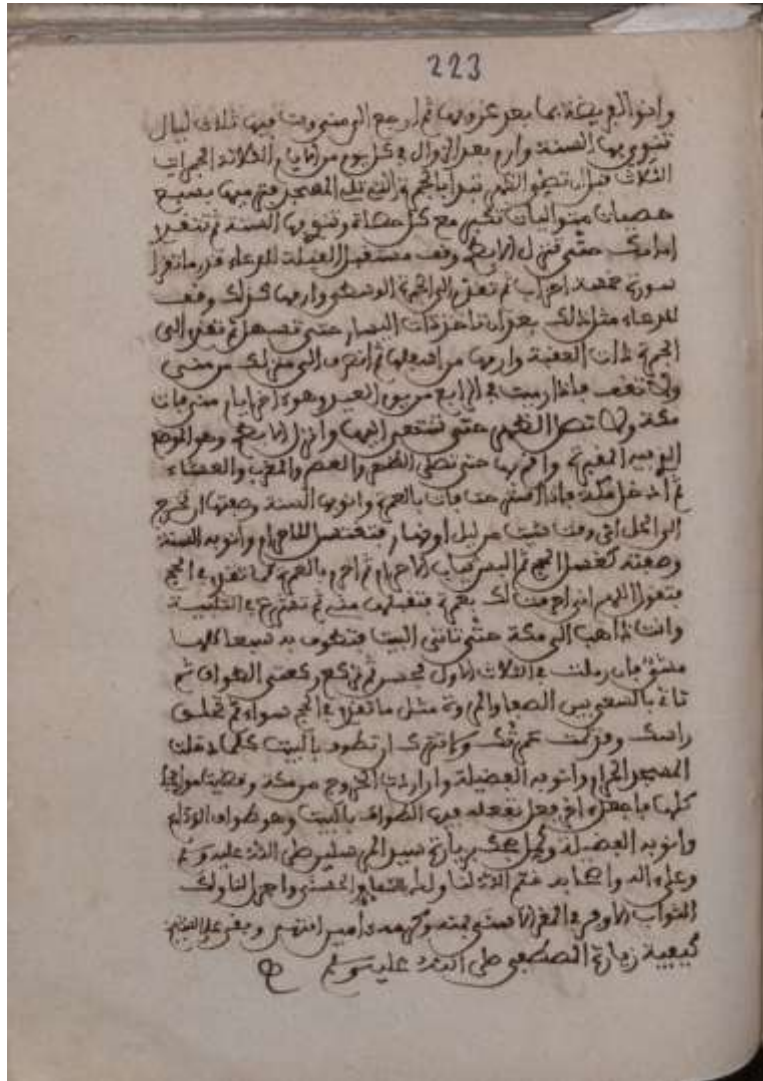 223
وانو الفريضة بها بعد غروبها ثم ارجع الى منى وبت فيها ثلاث ليال
تنوي بها السنة وارم بعد الزوال في كل يوم من الايام الثلاثة الجمرات
الثلاث قبل ان تصلي الظهر تبدا بالجمرة التي تلي المسجد فترميها بسبع
حصيات متواليات تكبر مع كل حصاة وتنوي بها السنة ثم تتقدم
امامك حتى تنزل الابطح وقف مستقبل القبلة للدعاء قدر ما تقرا
سورة خمسة احزاب ثم تقدم الى الجمرة الوسطى وارمها كذلك وقف
للدعاء مثل ذلك بعد ان تاخذ ذات اليسار حتى تسهل ثم تقدم الى
الجمرة ذات العقبة وارمها من اسفلها ثم انصرف الى منزلك من منى
ولا تقف فاذا رميت في الرابع من يوم العيد وهو اخر ايام منى فات
مكة ولا تصل الظهر حتى تنتهي اليها وانزل الابطح وهو الموضع
الذي فيه المقبرة واقم بها حتى تصلي الظهر والعصر والمغرب والعشاء
ثم ادخل مكة فاذا افضت فات بالعمرة وانو بها السنة وصفتها ان تخرج
الى الحل اي وقت شئت من ليل او نهار فتغتسل للاحرام وانو به السنة
وصفته كغسل الحج ثم البس ثياب الاحرام ثم احرم بالعمرة كما تقدم في الحج
فتقول اللهم اني احرمت لك بعمرة فتقبلها مني ثم تشرع في التلبية
وانت ذاهب الى مكة حتى تاتي البيت فتطوف به سبعا كلها
مشي فان رملت في الثلاث الاول فحسن ثم تركع ركعتي الطواف ثم
تات بالسعي بين الصفا والمروة مثل ما تقدم في الحج سواء ثم تحلق
راسك وقد تمت عمرتك ولا تترك ان تطوف بالبيت كلما دخلت
المسجد الحرام وانو به الفضيلة وان اردت الخروج من مكة وقضيت حوايجك
كلها فاجعل اخر فعل تفعله فيها الطواف بالبيت وهو طواف الوداع
وانو به الفضيلة وكمل حجك بزيارة سيد المرسلين صلى الله عليه وسلم
وعلى اله واصحابه ختم الله لنا ولك بالحسنى واجزل لنا ولك
الثواب الاوفر في المقر الاسنى بمنه وكرمه امين انتهى وبقي عليه
كيفية زيارة المصطفى صلى الله عليه وسلم